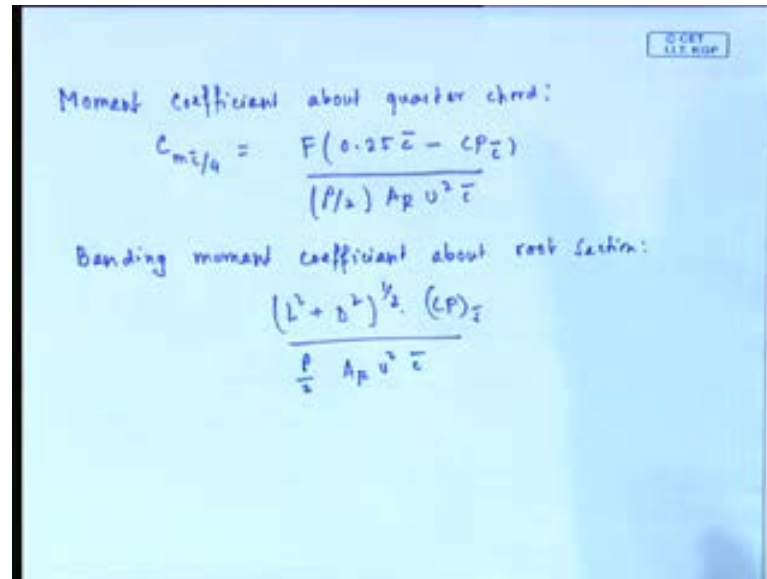 © CET
I.I.T. KGP
Moment coefficient about quarter chord:
C_{m c̄/4} = F(0.25 c̄ - CP_{c̄})
(ρ/2) A_R U² c̄
Banding moment coefficient about root section:
(L² + D²)^{1/2}. (CP)_{c̄}
ρ/2 A_R U² c̄